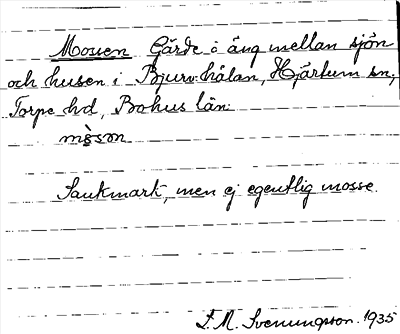 Mossen Gärde o äng mellan sjön
och husen i Bjurvihålan, Hjärtum sn,
Torpe hd, Bohus län.
mòsən
Sankmark, men ej egentlig mosse.
S. M. Svenungsson. 1935